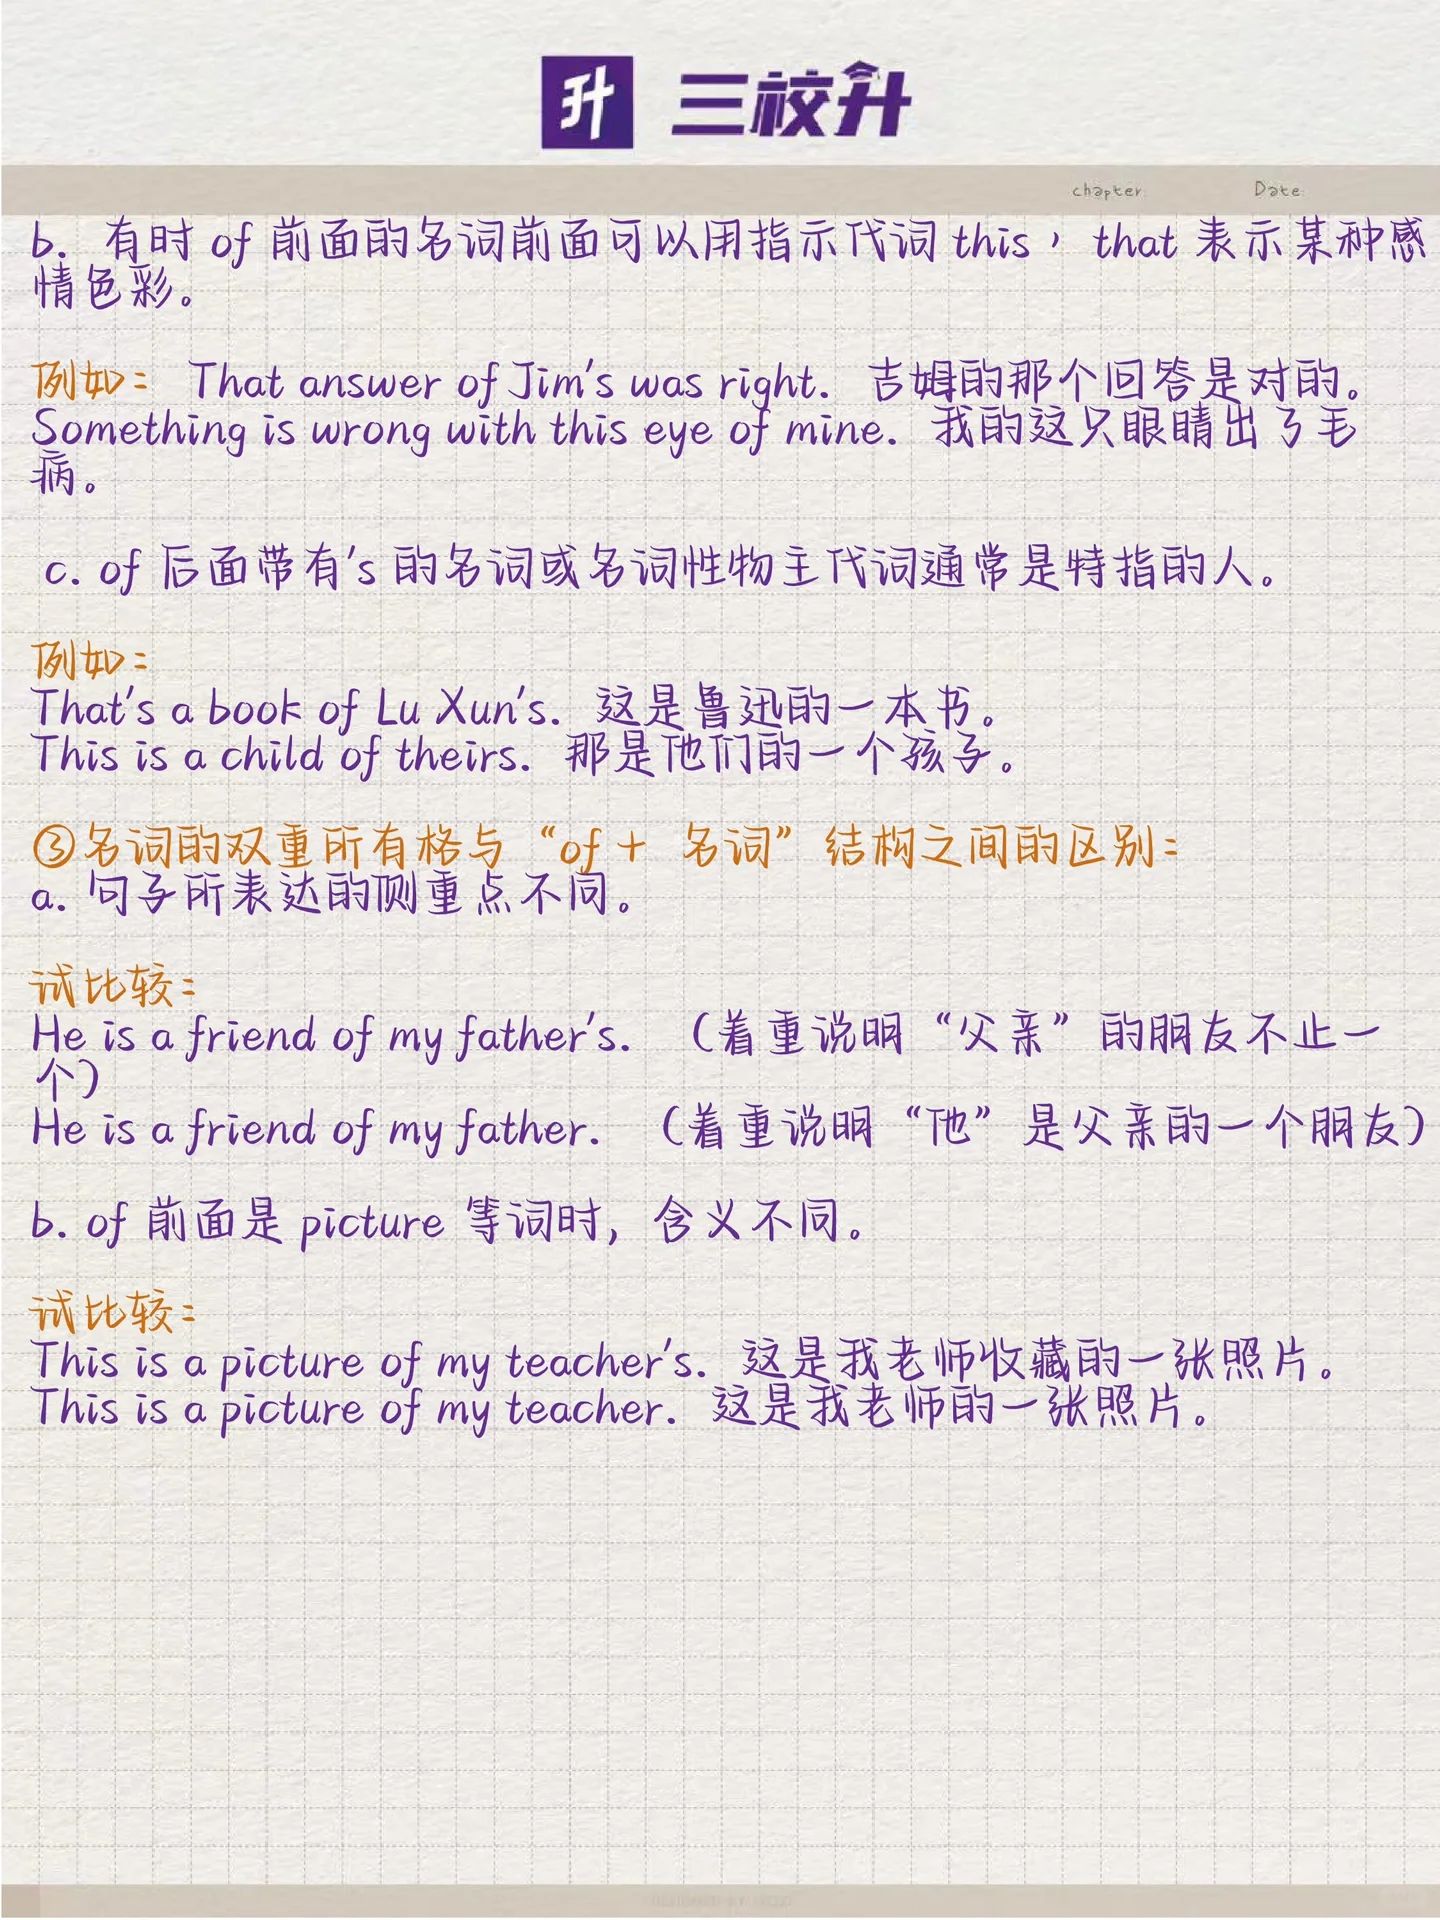 升 三校升
chapter: Date:
b. 有时 of 前面的名词前面可以用指示代词 this，that 表示某种感
情色彩。
例如： That answer of Jim's was right. 吉姆的那个回答是对的。
Something is wrong with this eye of mine. 我的这只眼睛出了毛
病。
c. of 后面带有's 的名词或名词性物主代词通常是特指的人。
例如：
That's a book of Lu Xun's. 这是鲁迅的一本书。
This is a child of theirs. 那是他们的一个孩子。
③名词的双重所有格与“of + 名词”结构之间的区别：
a. 句子所表达的侧重点不同。
试比较：
He is a friend of my father's. （着重说明“父亲”的朋友不止一
个）
He is a friend of my father. （着重说明“他”是父亲的一个朋友）
b. of 前面是 picture 等词时，含义不同。
试比较：
This is a picture of my teacher's. 这是我老师收藏的一张照片。
This is a picture of my teacher. 这是我老师的一张照片。